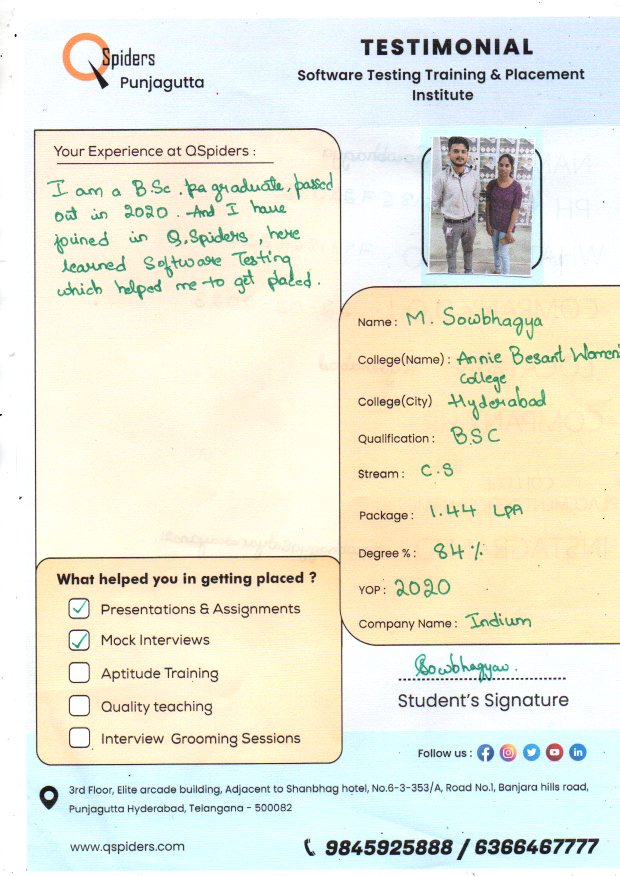 QSpiders
Punjagutta
TESTIMONIAL
Software Testing Training & Placement
Institute
Your Experience at QSpiders :
I am a B.Sc. graduate, passed
out in 2020. And I have
joined in Q.Spiders, here
learned Software Testing
which helped me to get placed.
Name : M. Sowbhagya
College(Name) : Annie Besant Women's
College
College(City) Hyderabad
Qualification : B.SC
Stream : C.S
Package : 1.44 LPA
Degree % : 84%
YOP : 2020
Company Name : Indium
What helped you in getting placed ?
Presentations & Assignments
Mock Interviews
Aptitude Training
Quality teaching
Interview Grooming Sessions
Student's Signature
Follow us :
3rd Floor, Elite arcade building, Adjacent to Shanbhag hotel, No.6-3-353/A, Road No.1, Banjara hills road,
Punjagutta Hyderabad, Telangana - 500082
www.qspiders.com
9845925888 / 6366467777